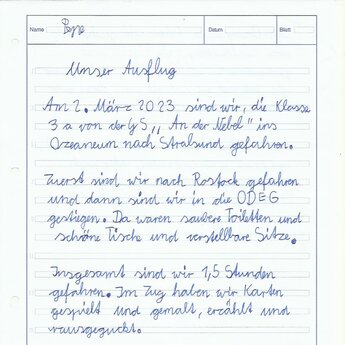 Name Pepe Datum Blatt
Unser Ausflug
Am 2. März 2023 sind wir, die Klasse
3 a von der GS „An der Nebel" ins
Ozeaneum nach Stralsund gefahren.
Zuerst sind wir nach Rostock gefahren
und dann sind wir in die ODEG
gestiegen. Da waren saubere Toiletten und
schöne Tische und verstellbare Sitze.
Insgesamt sind wir 1,5 Stunden
gefahren. Im Zug haben wir Karten
gespielt und gemalt, erzählt und
rausgeguckt.